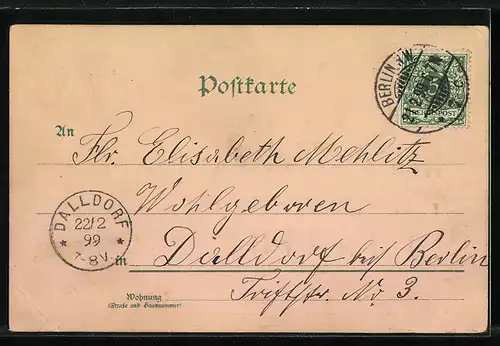 Postkarte
BERLIN N.W.
REICHSPOST
An
Frl. Elisabeth Mehlitz
Wohlgeboren
DALLDORF
22/2
99
7-8V.
in Dalldorf bei Berlin
Wohnung
(Straße und Hausnummer)
Triftstr. No 3.